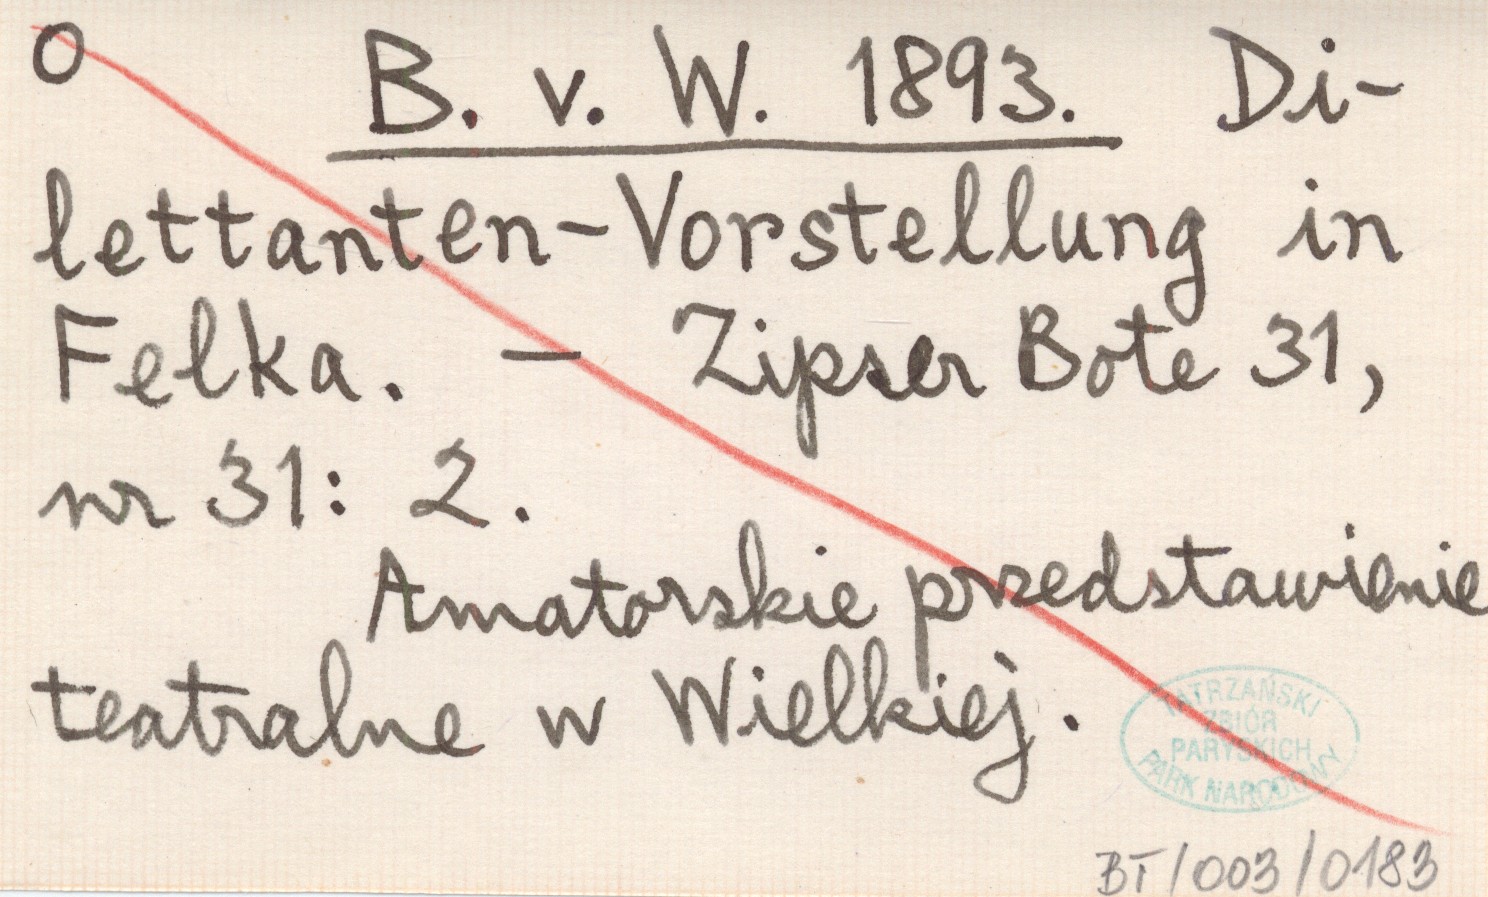 O B. v. W. 1893. Di-
lettanten-Vorstellung in
Felka. — Zipser Bote 31,
nr 31: 2.
Amatorskie przedstawienie
teatralne w Wielkiej.
TATRZAŃSKI
ZBIÓR
PARYSKICH
PARK NARODOWY
BT/003/0183